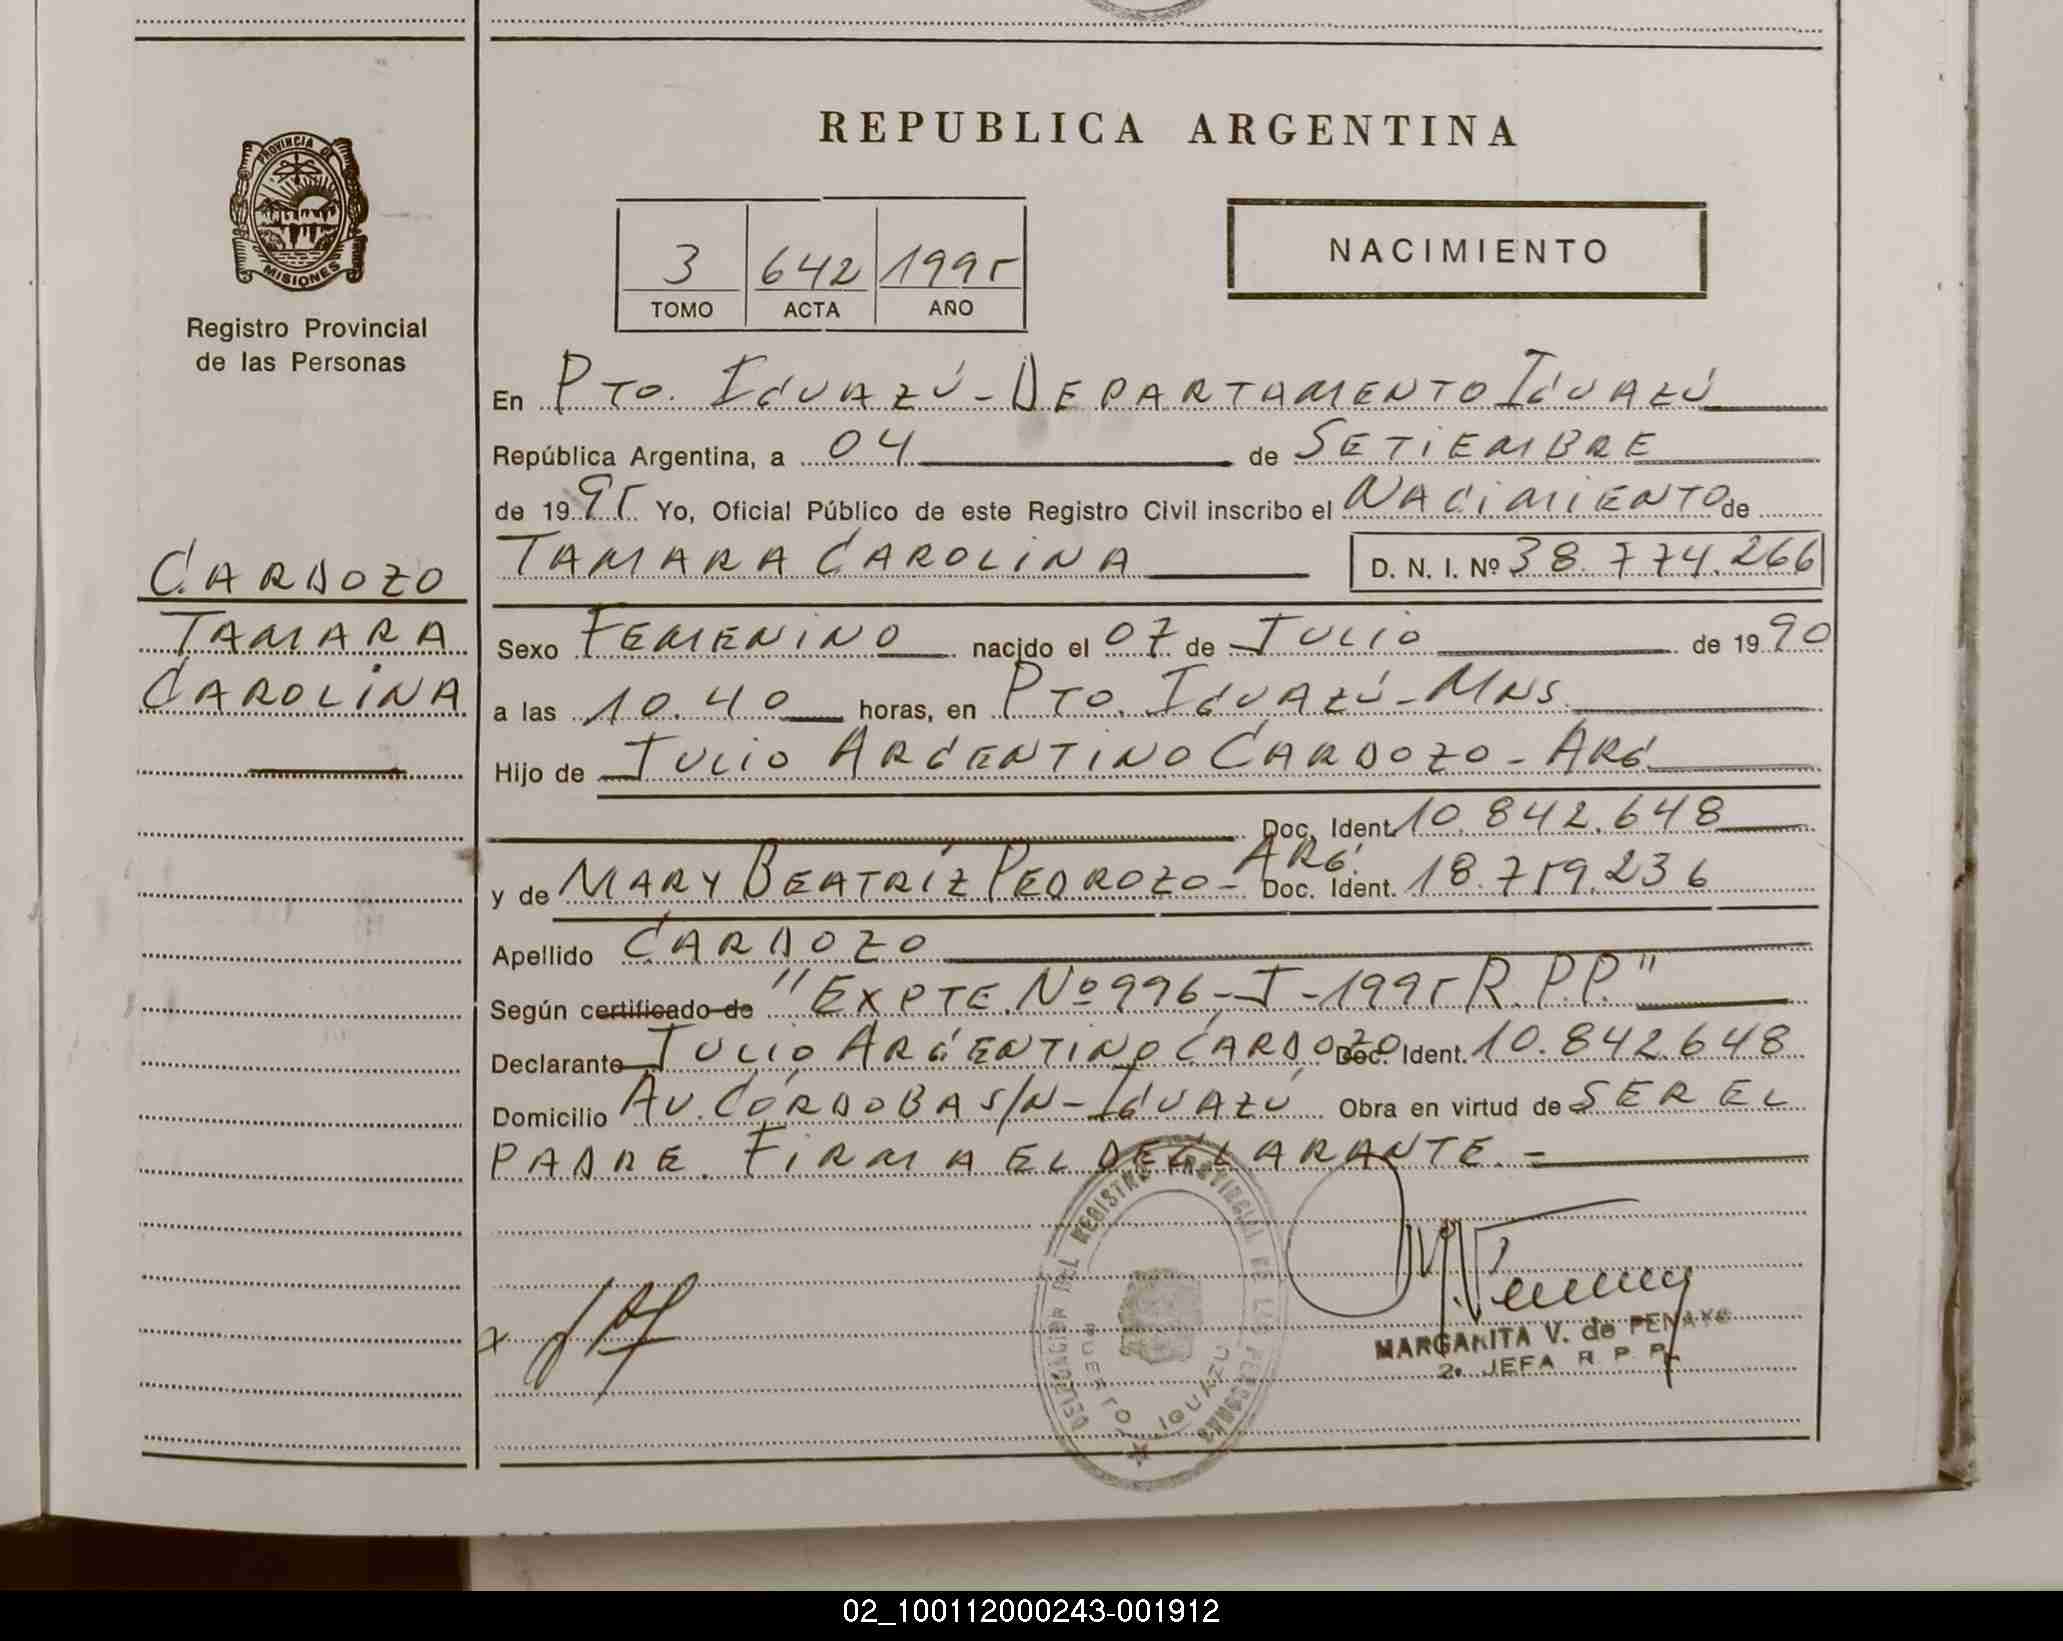 REPUBLICA ARGENTINA
PROVINCIA DE
MISIONES
Registro Provincial
de las Personas
3 642 1995
TOMO ACTA AÑO
NACIMIENTO
En PTO. IGUAZÚ - DEPARTAMENTO IGUAZÚ
República Argentina, a 04 de SETIEMBRE
de 1995 Yo, Oficial Público de este Registro Civil inscribo el NACIMIENTO de
TAMARA CAROLINA D. N. I. Nº 38.774.266
CARDOZO
TAMARA
CAROLINA
Sexo FEMENINO nacido el 07 de JULIO de 1990
a las 10.40 horas, en PTO. IGUAZÚ - MNS.
Hijo de JULIO ARGENTINO CARDOZO - ARG.
Doc. Ident. 10.842.648
y de MARY BEATRÍZ PEDROZO - ARG. Doc. Ident. 18.759.236
Apellido CARDOZO
Según certificado de "EXPTE. Nº 996 - J - 1995 R.P.P."
Declarante JULIO ARGENTINO CARDOZO Doc. Ident. 10.842.648
Domicilio AV. CÓRDOBA S/N - IGUAZÚ Obra en virtud de SER EL
PADRE. FIRMA EL DECLARANTE. =
DELEGACION DEL REGISTRO PROVINCIAL DE LAS PERSONAS
PUERTO IGUAZU
MARGARITA V. de PENAYO
2a. JEFA R. P. P.
02_100112000243-001912